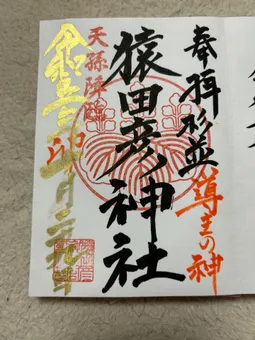 奉拝 杉並 導きの神
猿田彦神社
天孫降臨
令和五 卯 月二九日